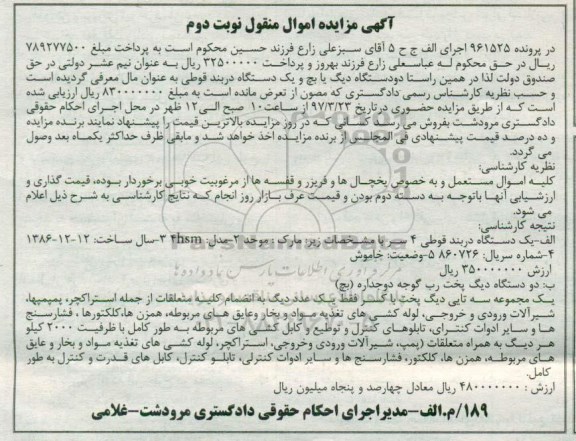 آگهی مزایده اموال منقول نوبت دوم
در پرونده ۹۶۱۵۲۵ اجرای الف ج ح ۵ آقای سبزعلی زارع فرزند حسین محکوم است به پرداخت مبلغ ۷۸۹۲۷۷۵۰۰
ریال در حق محکوم له عباسعلی زارع فرزند بهروز و پرداخت ۳۲۵۰۰۰۰۰ ریال به عنوان نیم عشر دولتی در حق
صندوق دولت لذا در همین راستا دودستگاه دیگ یا پچ و یک دستگاه دربند قوطی به عنوان مال معرفی گردیده است
و حسب نظریه کارشناس رسمی دادگستری که مصون از تعرض مانده است به مبلغ ۸۳۰۰۰۰۰۰۰ ریال ارزیابی شده
است که از طریق مزایده حضوری درتاریخ ۹۷/۳/۲۳ از ساعت ۱۰ صبح الی ۱۲ ظهر در محل اجرای احکام حقوقی
دادگستری مرودشت بفروش می رسد کسانی که در روز مزایده بالاترین قیمت را پیشنهاد نمایند برنده مزایده
و ده درصد قیمت پیشنهادی فی المجلس از برنده مزایده اخذ خواهد شد و مابقی ظرف حداکثر یکماه بعد وصول
می گردد.
نظریه کارشناسی:
کلیه اموال مستعمل و به خصوص یخچال ها و فریزر و قفسه ها از مرغوبیت خوبی برخوردار بوده، قیمت گذاری و
ارزشیابی آنها باتوجه به دسته دوم بودن و قیمت عرف بازار روز انجام که نتایج کارشناسی به شرح ذیل اعلام
می شود.
نتیجه کارشناسی:
الف-یک دستگاه دربند قوطی ۴ سر با مشخصات زیر: مارک: موحد ۲-مدل: 4hsm ۳-سال ساخت: ۱۲-۱۲-۱۳۸۶
۴-شماره سریال: ۸۶۰۷۲۶ ۵-وضعیت: خاموش
ارزش ۳۵۰۰۰۰۰۰۰ ریال
ب: دو دستگاه دیگ پخت رب گوجه دوجداره (پچ)
یک مجموعه سه تایی دیگ پخت با کلدر فقط یک عدد دیگ به انضمام کلیه متعلقات از جمله استراکچر، پمپها،
شیرآلات ورودی و خروجی، لوله کشی های تغذیه مواد و بخار وعایق های مربوطه، همزن ها، کلکتورها، فشارسنج
ها و سایر ادوات کنترلی، تابلوهای کنترل و توطیع و کابل کشی های مربوطه به طور کامل با ظرفیت ۲۰۰۰ کیلو
هر دیگ به همراه متعلقات (پمپ، شیرآلات ورودی وخروجی، استراکچر، لوله کشی های تغذیه مواد و بخار و عایق
های مربوطه، همزن ها، کلکتور، فشارسنج ها و سایر ادوات کنترلی، تابلو کنترل، کابل های قدرت و کنترل به طور
کامل.
ارزش: ۴۸۰۰۰۰۰۰۰ ریال معادل چهارصد و پنجاه میلیون ریال
۱۸۹/م.الف-مدیراجرای احکام حقوقی دادگستری مرودشت-غلامی